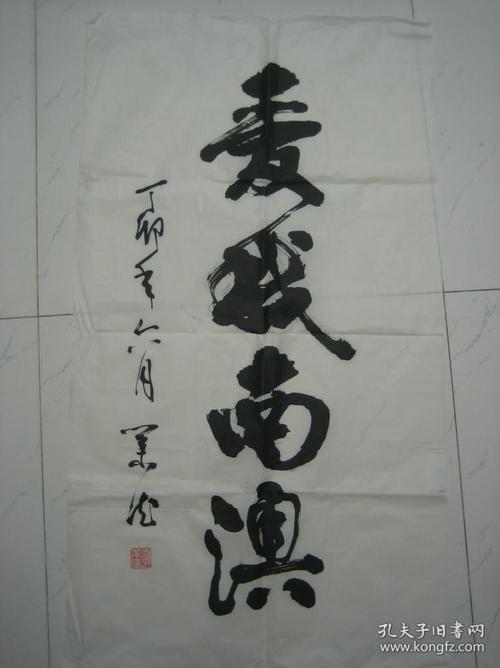 爱我南澳
丁卯年六月
孔夫子旧书网
www.kongfz.com